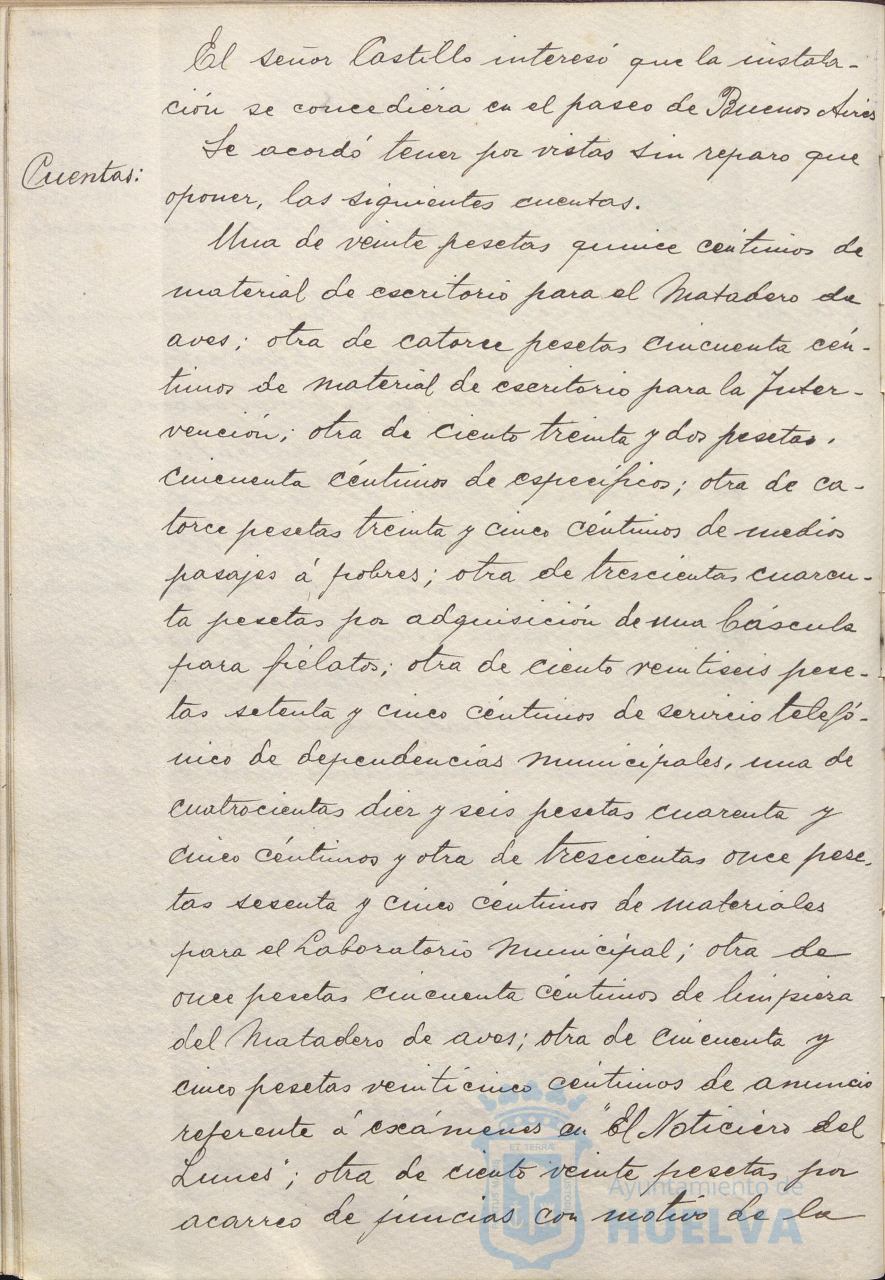 El señor Castillo interesó que la instala-
ción se concediéra en el paseo de Buenos Aires
Cuentas:
Se acordó tener por vistas sin reparo que
oponer, las siguientes cuentas.
Una de veinte pesetas quince céntimos de
material de escritorio para el Matadero de
aves; otra de catorce pesetas cincuenta cén-
timos de material de escritorio para la Inter-
vención; otra de ciento treinta y dos pesetas,
cincuenta céntimos de específicos; otra de ca-
torce pesetas treinta y cinco céntimos de medios
pasajes á pobres; otra de trescientas cuaren-
ta pesetas por adquisición de una báscula
para fiélatos; otra de ciento veintiseis pese-
tas setenta y cinco céntimos de servicio telefó-
nico de dependencias municipales, una de
cuatrocientas diez y seis pesetas cuarenta y
cinco céntimos y otra de trescientas once pese-
tas sesenta y cinco céntimos de materiales
para el Laboratorio Municipal; otra de
once pesetas cincuenta céntimos de limpieza
del Matadero de aves; otra de cincuenta y
cinco pesetas veinticinco céntimos de anuncio
referente á exámenes en "El Noticiero del
Lunes"; otra de ciento veinte pesetas por
acarreo de juncias con motivo de la
ET TERRA
Ayuntamiento de
HUELVA